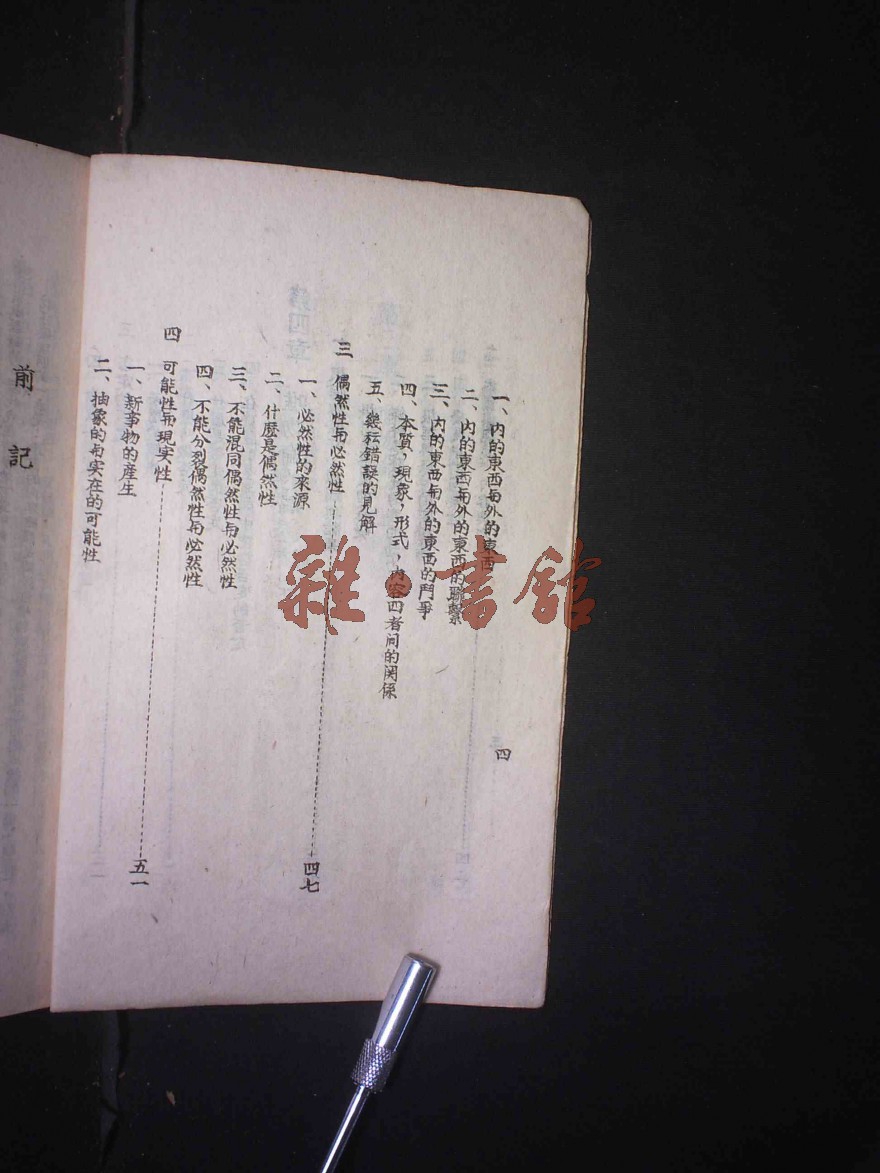 一、內的東西与外的東西
二、內的東西与外的東西的聯繫
三、內的東西与外的東西的鬥爭
四、本質，現象，形式，內容四者间的関係
五、幾种錯誤的見解
三 偶然性与必然性 四七
一、必然性的來源
二、什麽是偶然性
三、不能混同偶然性与必然性
四、不能分裂偶然性与必然性
四 可能性与現实性 五一
一、新事物的產生
二、抽象的与实在的可能性
四
前記
雜·書館